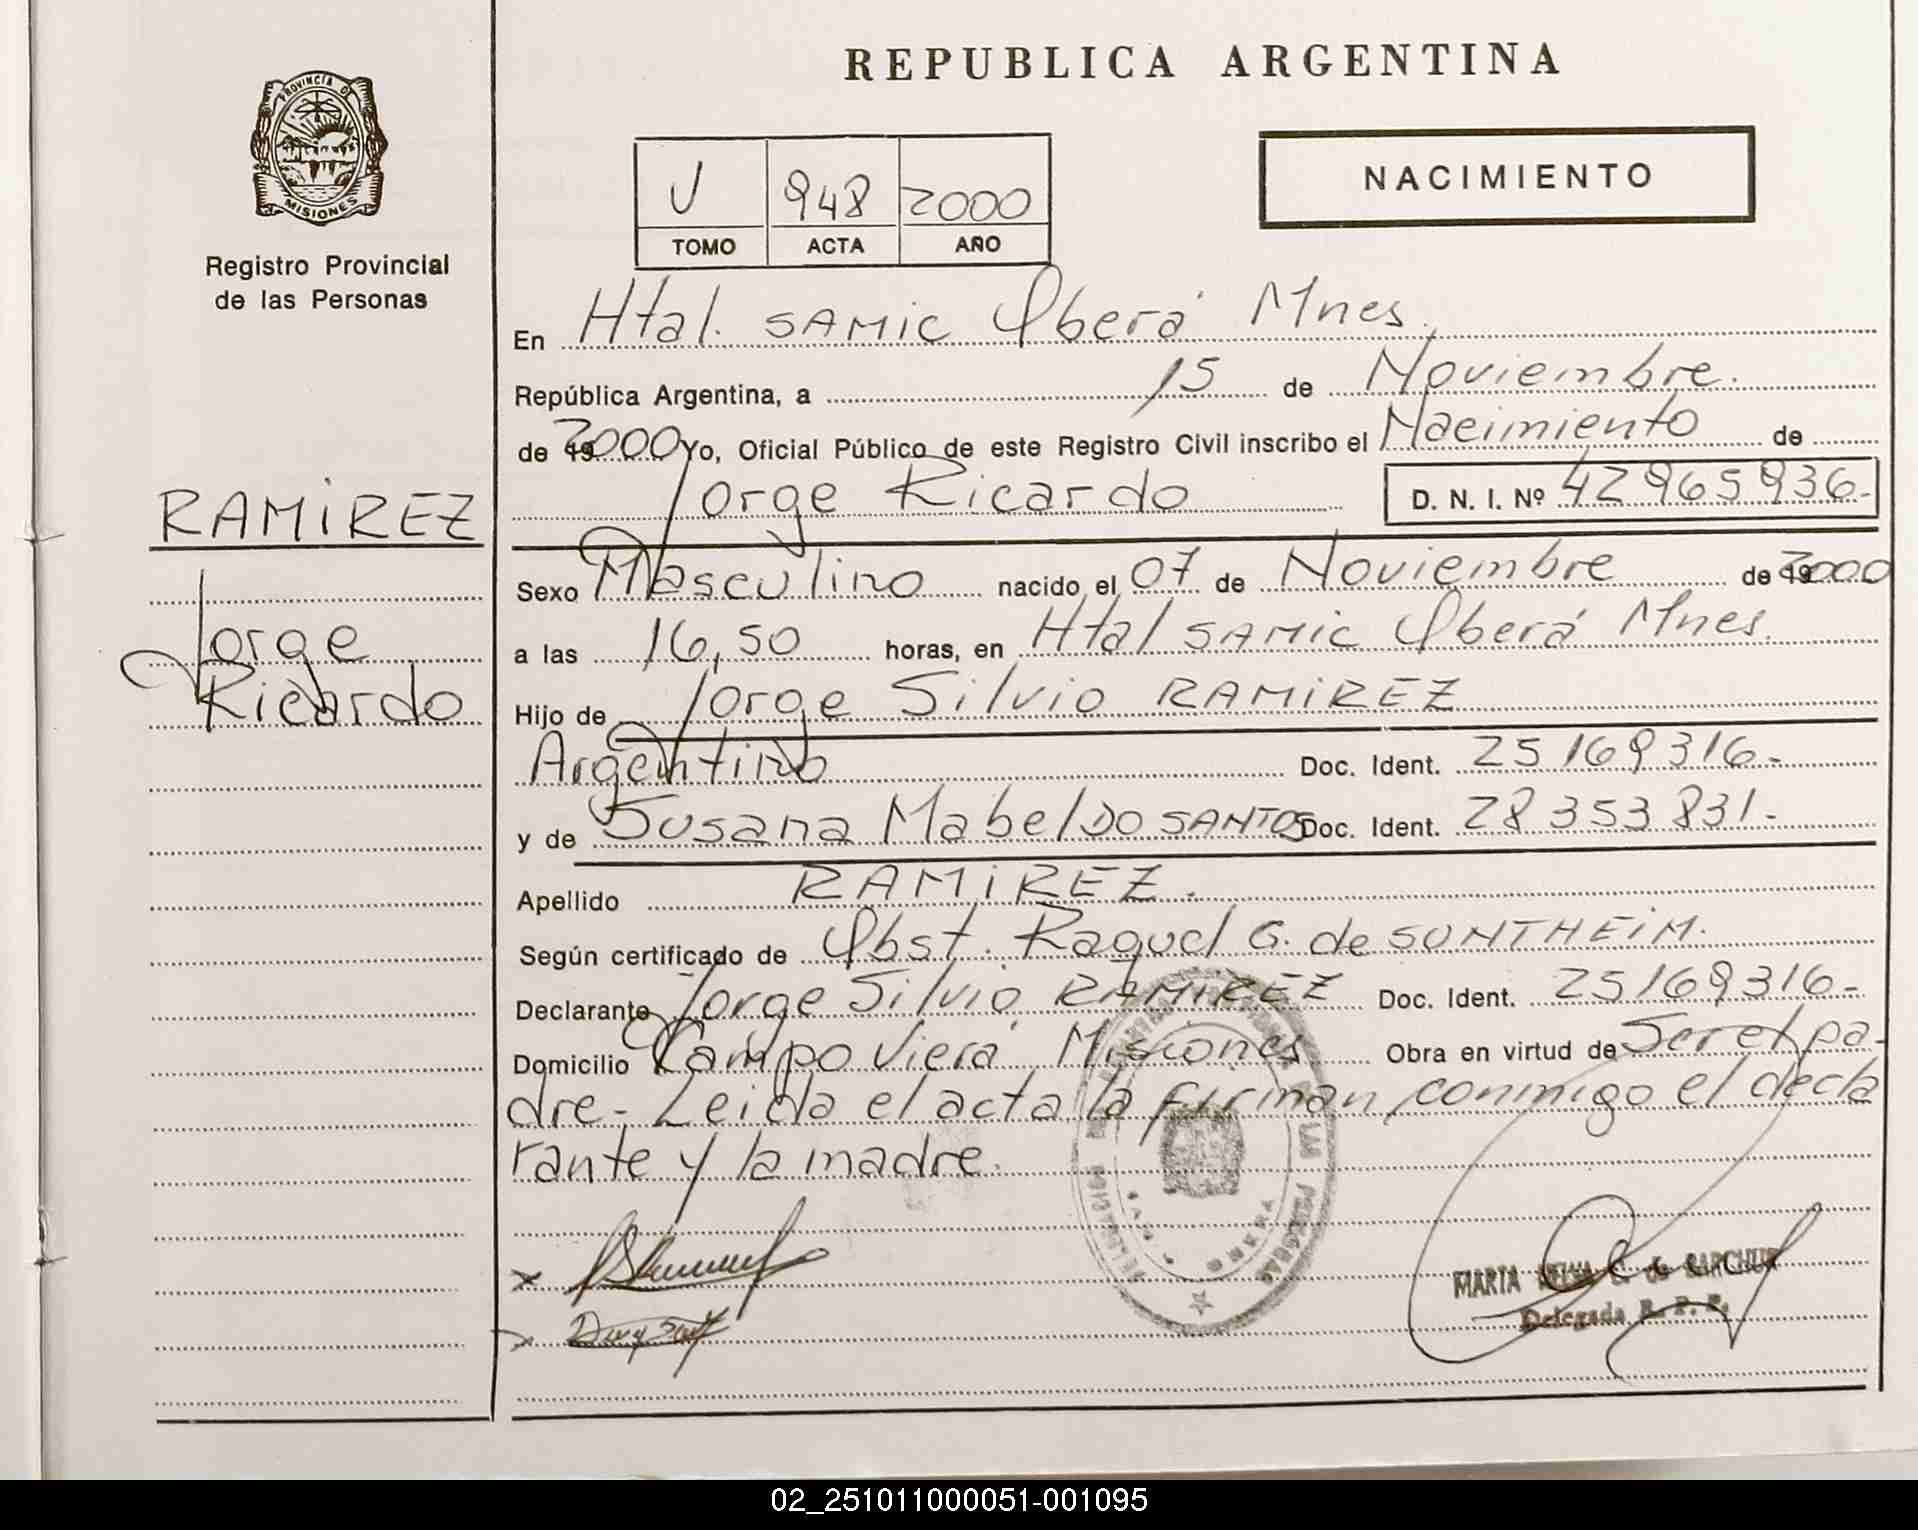 REPUBLICA ARGENTINA
PROVINCIA DE
MISIONES
Registro Provincial
de las Personas
V 948 2000
TOMO ACTA AÑO
NACIMIENTO
En Htal. SAMIC Oberá Mnes.
República Argentina, a 15 de Noviembre.
de 192000 Yo, Oficial Público de este Registro Civil inscribo el Nacimiento de
Jorge Ricardo D. N. I. Nº 42965936.
RAMIREZ
Jorge
Ricardo
Sexo Masculino nacido el 07 de Noviembre de 192000
a las 16,50 horas, en Htal SAMIC Oberá Mnes.
Hijo de Jorge Silvio RAMIREZ
Argentino Doc. Ident. 25169316.-
y de Susana Mabel DO SANTOS Doc. Ident. 28353831.-
Apellido RAMIREZ.
Según certificado de Obst. Raquel G. de SUNTHEIM.
Declarante Jorge Silvio RAMIREZ Doc. Ident. 25169316-
Domicilio Campo Viera Misiones Obra en virtud de Ser el pa-
dre.- Leida el acta, la firman conmigo el decla
rante y la madre.
MARTA
Delegada R. P. P.
02_251011000051-001095